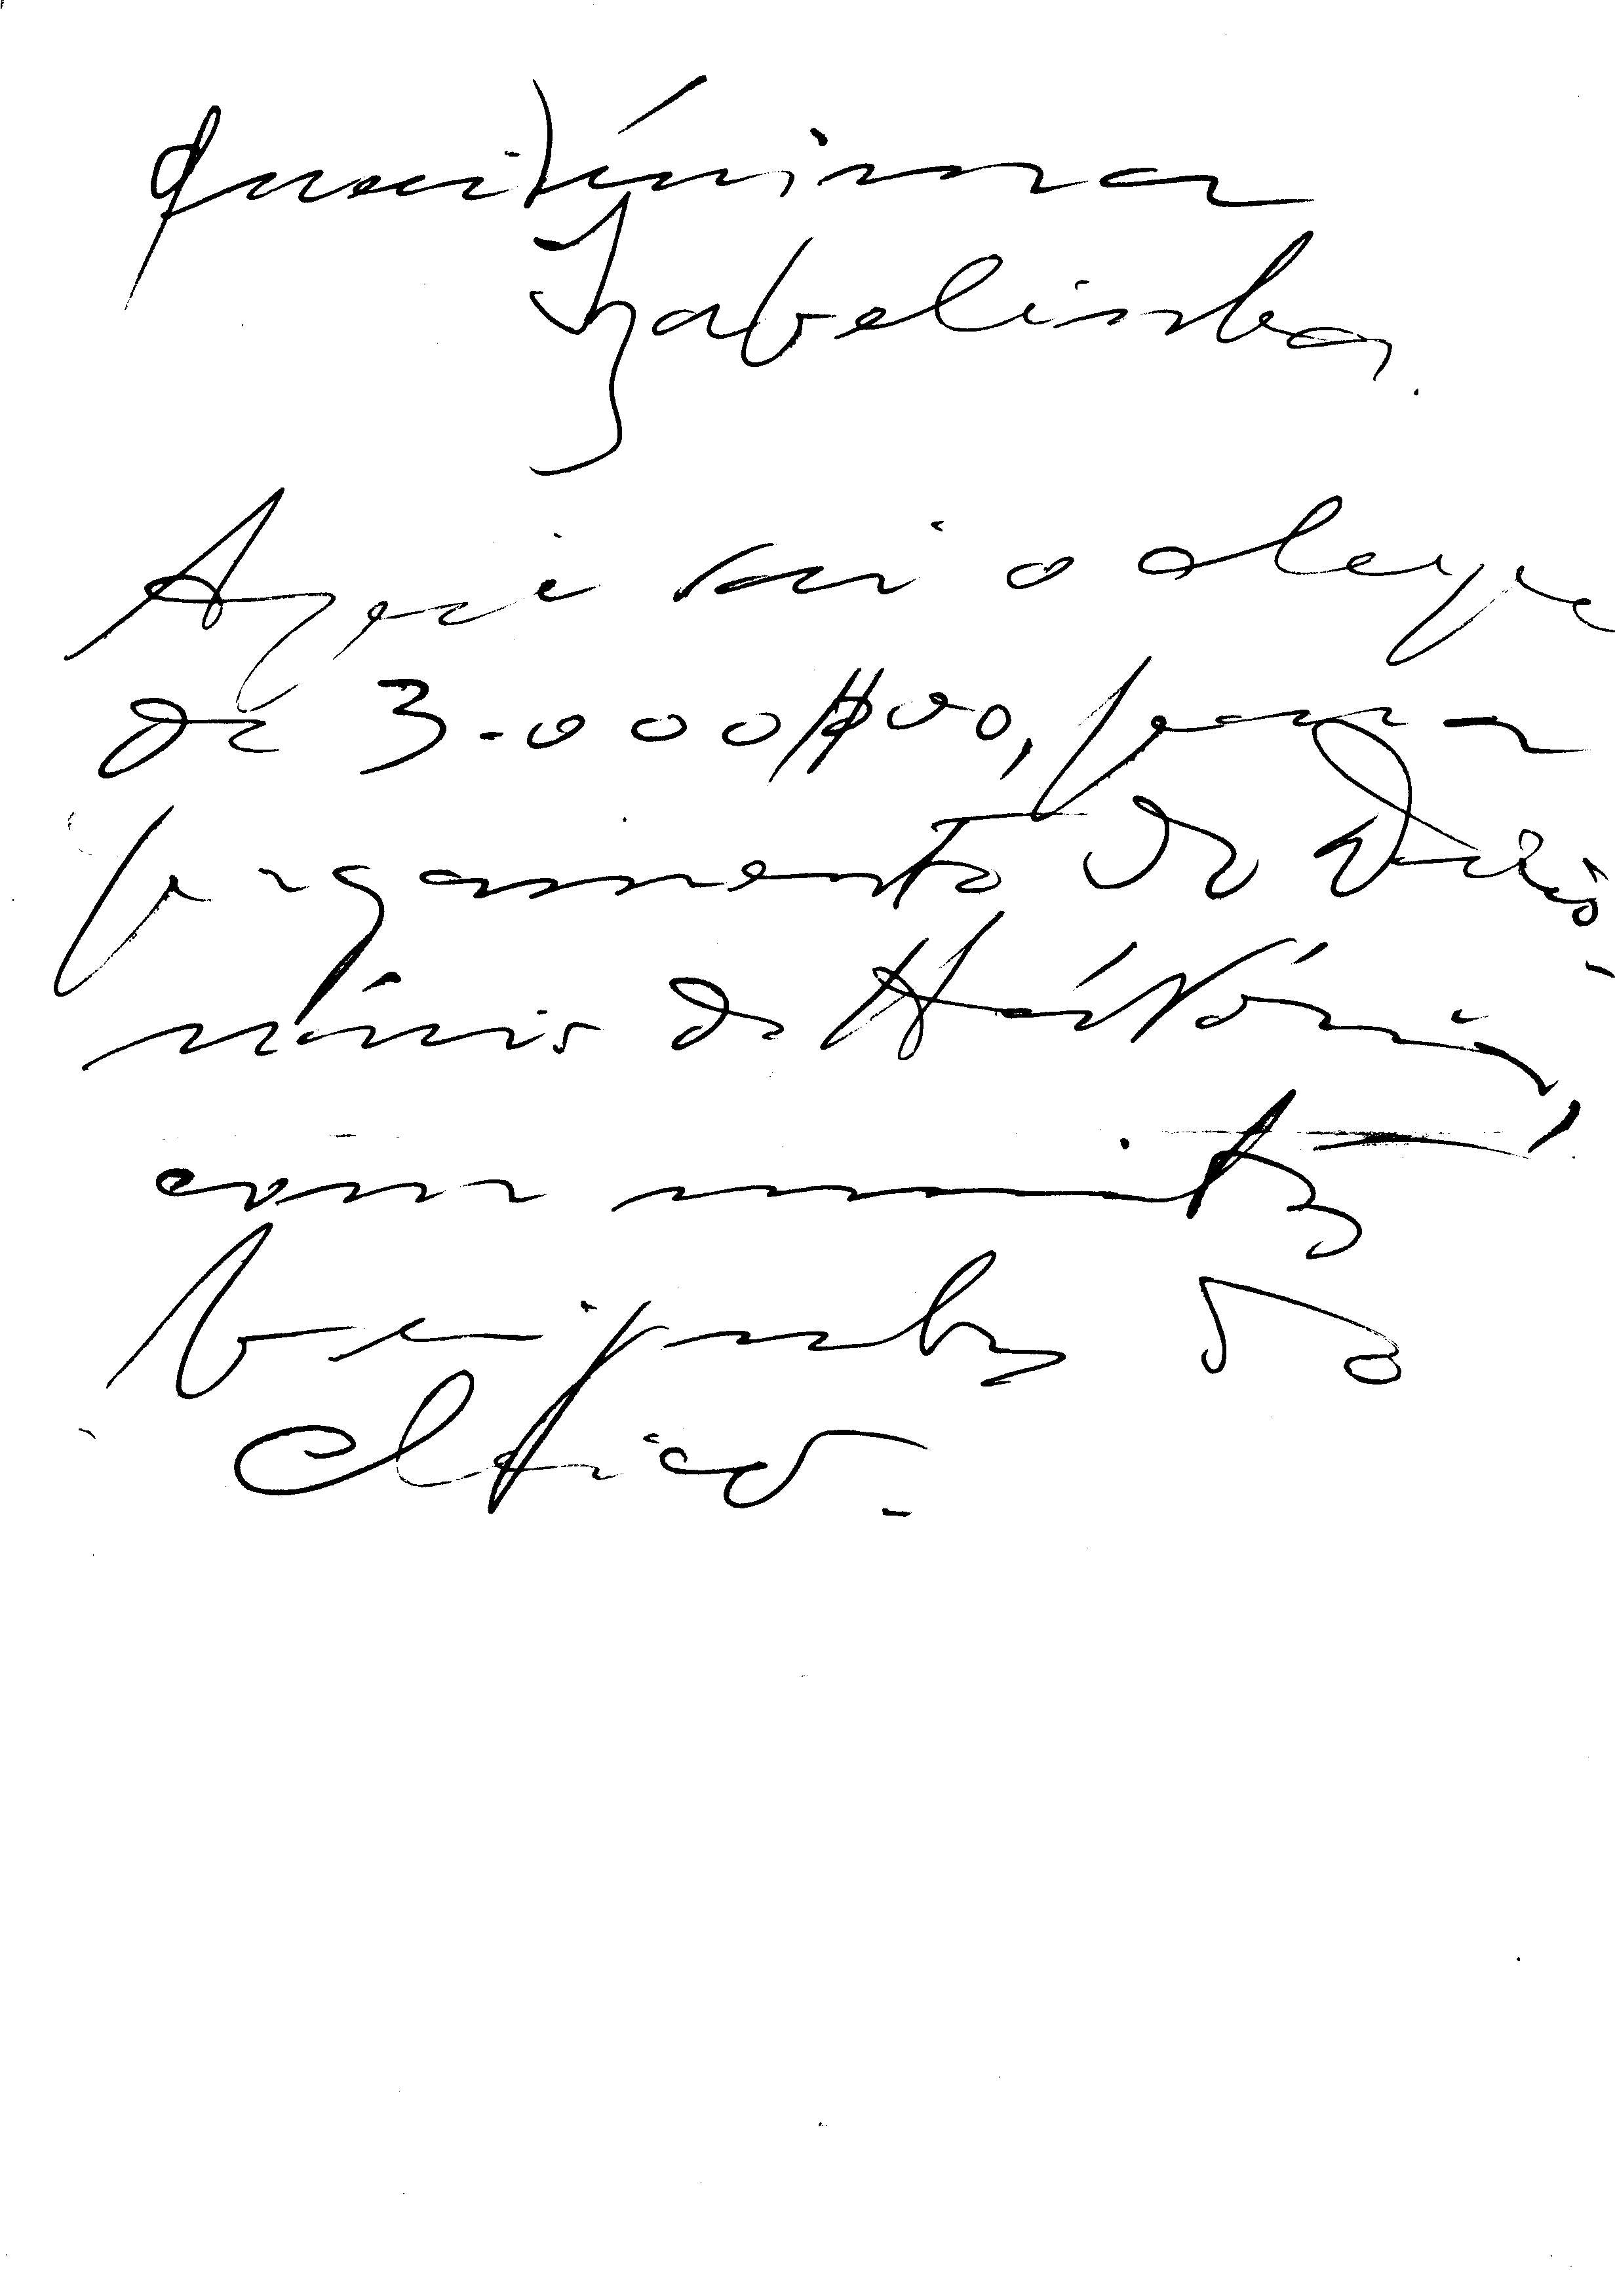 queridíssima
Izabelinha,
Aqui vai o cheque
de 3.000$00, para
pagamento do Dicio-
nário da História,
com muitos
beijinhos do
Chico.